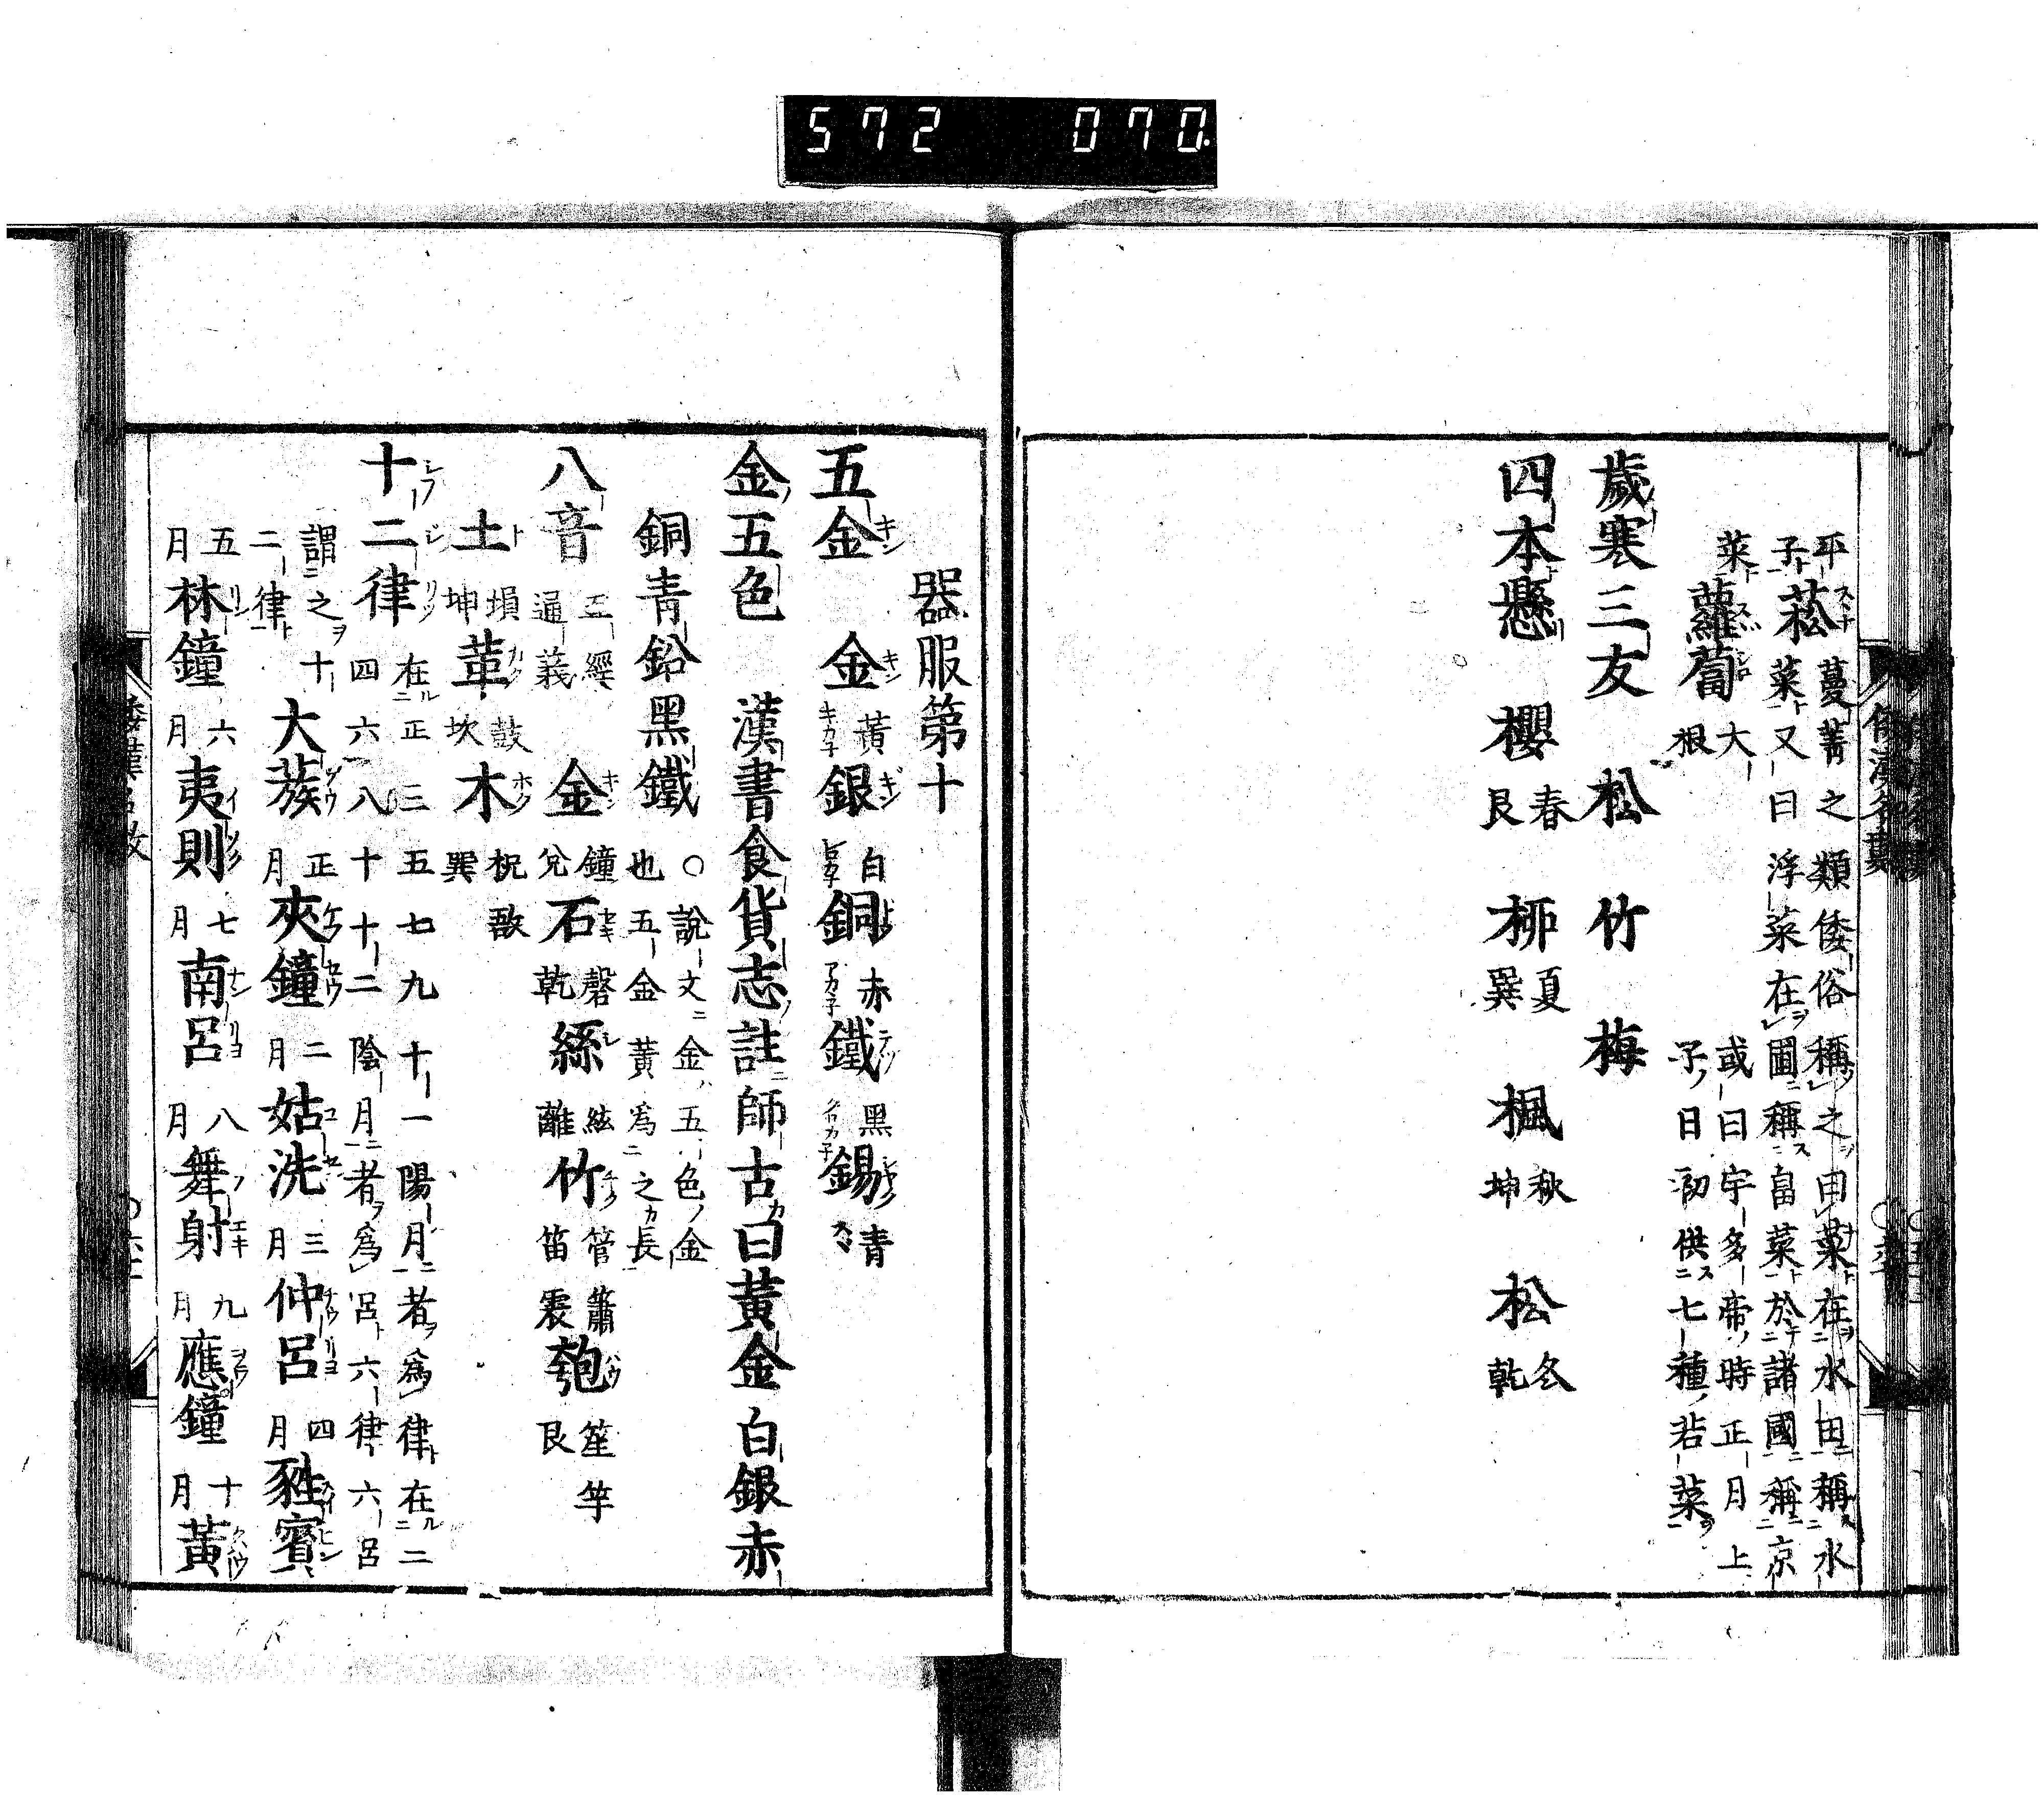 572 070
平 菘 蔓菁之類倭俗稱之田菜在水田稱水
子 菜又曰浮菜在圃稱畠菜於諸國稱京
菜 蘿蔔 大根 或曰宇多帝時正月上
子日初供七種若菜
歲寒三友 松 竹 梅
四本懸 櫻 春艮 柳 夏巽 楓 秋坤 松 冬乾
器服第十
五金 金 黃キカネ 銀 白シロカネ 銅 赤アカカネ 鐵 黑クロカネ 錫 青スヾ
金五色 漢書食貨志註師古曰黃金白銀赤
銅青鉛黑鐵 ○說文金五色金
也五金黃為之長
八音 五經通義 金 鐘兌 石 磬乾 絲 絃離 竹 管簫笛震 匏 笙竽艮
土 塤坤 革 鼓坎 木 柷敔巽
十二律 在正三五七九十一陽月者為律在二
四六八十十二陰月者為呂六律六呂
謂之十二律 大蔟 正月 夾鐘 二月 姑洗 三月 仲呂 四月 蕤賓
五月 林鐘 六月 夷則 七月 南呂 八月 舞射 九月 應鐘 十月 黃